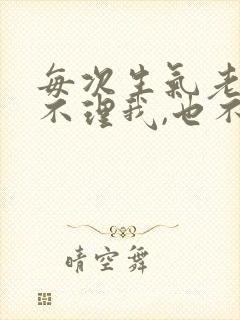 每次生氣老
不理我,也不
晴空舞